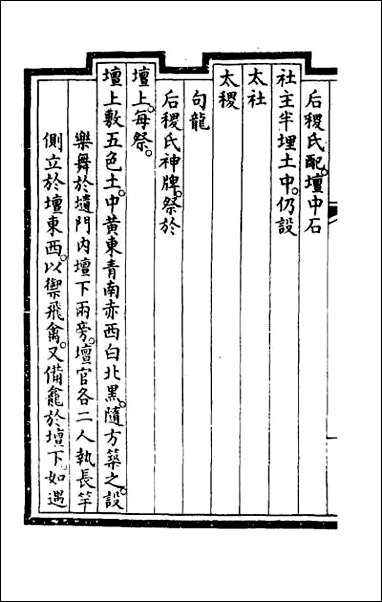 后稷氏配。壇中石
社主半埋土中。仍設
太社
太稷
句龍
后稷氏神牌。祭於
壇上。每祭。
壇上敷五色土。中黄東青南赤西白北黑。隨方築之。設
樂舞於壝門内壇下兩旁。壇官各二人執長竿
側立於壇東西。以禦飛禽。又備龕於壇下。如遇